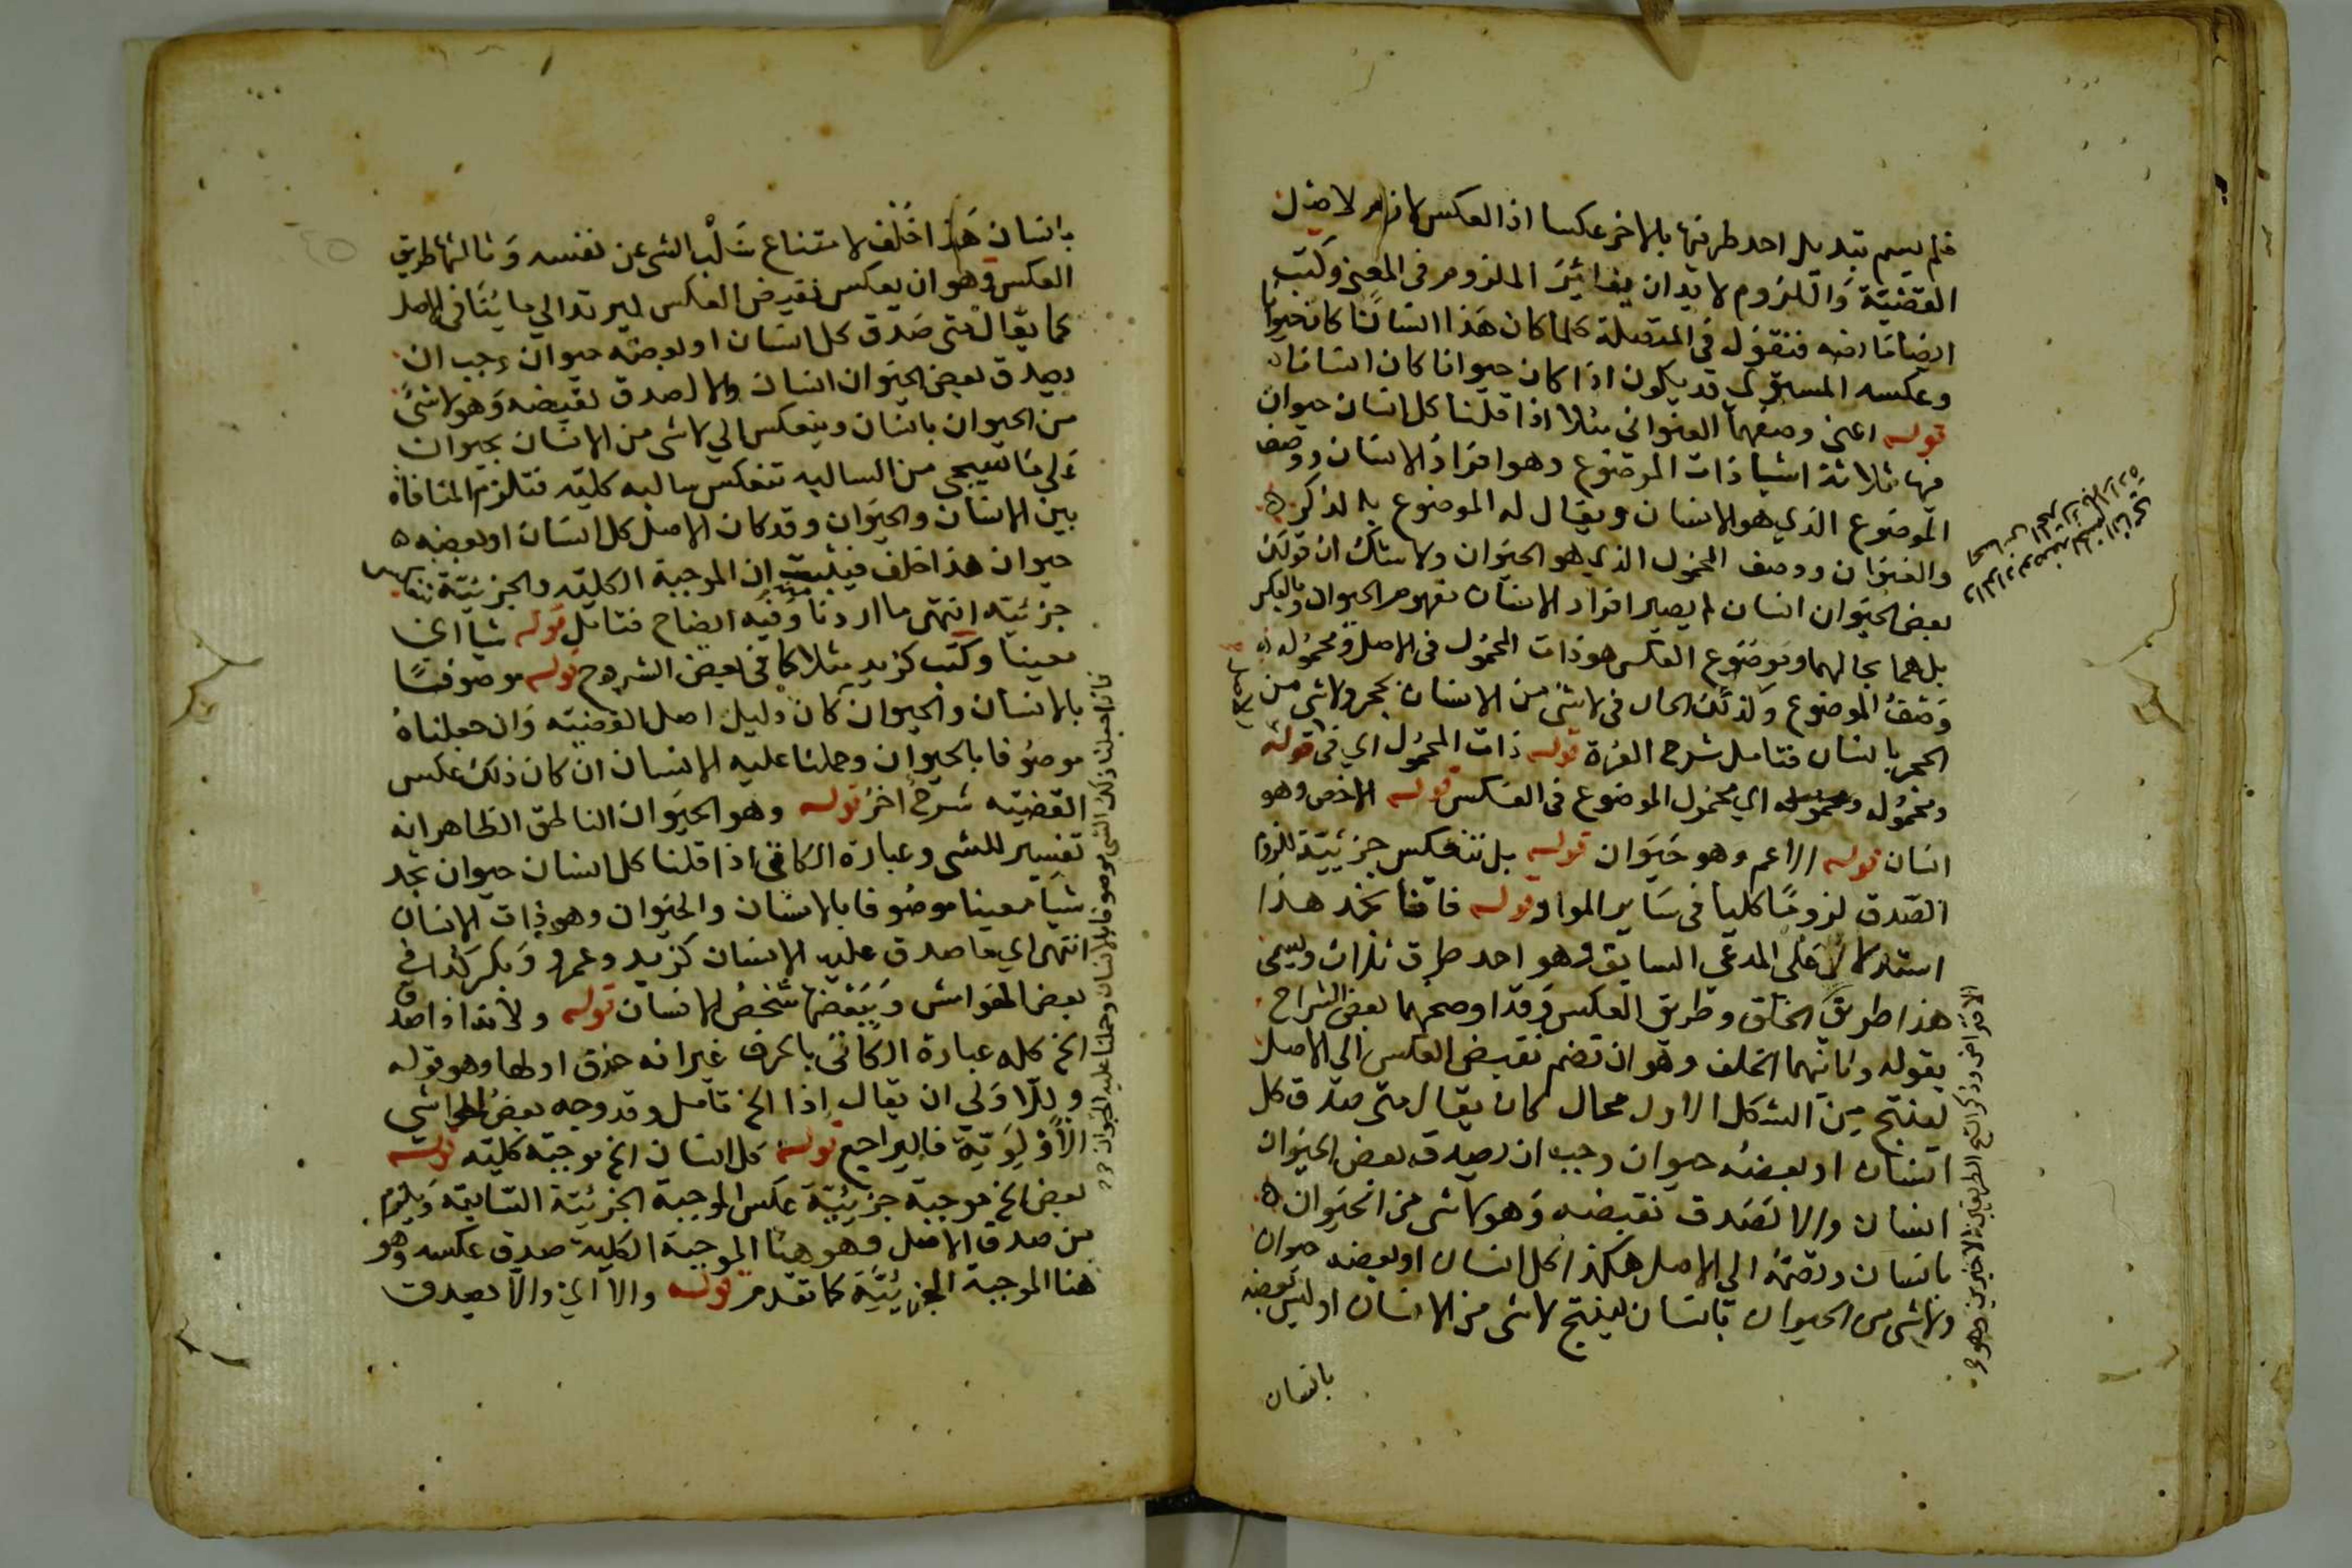 فلم يسم تبديل احد طرفيها بالاخر عكسا اذ العكس لازم لاصل
القضية واللزوم لا بد ان يغاير الملزوم في المعنى وكتب
ايضا ما نصه فنقول في المتصلة كلما كان هذا انسانا كان حيوانا
وعكسه المستوي قد يكون اذا كان حيوانا كان انسانا
قوله اعني وصفهما العنواني مثلا اذا قلنا كل انسان حيوان
فيها ثلاثة اشيا ذات الموضوع وهو افراد الانسان ووصف
الموضوع الذي هو الانسان ويقال له الموضوع بالذكر
والعنوان ووصف المحمول الذي هو الحيوان ولا شك ان قولك
بعض الحيوان انسان لم يصير افراد الانسان مفهوم الحيوان وبالعكس
بل هما بحالهما وموضوع العكس هو ذات المحمول في الاصل ومحموله
وصف الموضوع وكذلك الحال في لا شي من الانسان بحجر ولا شي من
الحجر بانسان فتامل شرح الغرة قوله ذات المحمول اي في قوله
ومحموله ومحموله اي محمول الموضوع في العكس قوله الاخص وهو
انسان قوله الاعم وهو حيوان قوله بل تنعكس جزئية للزوم
الصدق لزوما كليا في ساير المواد قوله فاننا نجد هذا
استدلالا على المدعي السابق وهو احد طرق ثلاث ويسمى
هذا طريق الخلق وطريق العكس وقد اوضحهما بعض الشراح
بقوله وثانيهما الخلف وهو ان تضم نقيض العكس الى الاصل
لينتج من الشكل الاول محال كان يقال متى صدق كل
انسان او بعضه حيوان وجب ان يصدق بعض الحيوان
انسان والا لصدق نقيضه وهو لا شي من الحيوان
بانسان ونضمه الى الاصل هكذا كل انسان او بعضه حيوان
ولا شي من الحيوان بانسان لينتج لا شي من الانسان او ليس بعضه
بانسان
الافتراض وذكر الشرح الطريقين الاخيرين وهو
بانسان هذا خلف لامتناع سلب الشي عن نفسه وثالثها طريق
العكس وهو ان يعكس نقيض العكس ليرتد الى ما ينافي الاصل
كما يقال متى صدق كل انسان او بعضه حيوان وجب ان
يصدق بعض الحيوان انسان والا لصدق نقيضه وهو لا شي
من الحيوان بانسان وينعكس الي لا شي من الانسان بحيوان
على ما سيجي من السالبه تنعكس سالبه كليه فتلزم المنافاة
بين الانسان والحيوان وقد كان الاصل كل انسان او بعضه
حيوان هذا خلف فيثبت ان الموجبة الكليه والجزئية تنعكس
جزئيه انتهى ما اردنا وفيه ايضاح فتامل قوله شيا اي
معينا وكتب كزيد مثلا كما في بعض الشروح قوله موصوفا
بالانسان والحيوان كان دليل اصل القضيه وان جعلناه
موصوفا بالحيوان وحملنا عليه الانسان ان كان ذلك عكس
القضيه شرح اخر قوله وهو الحيوان الناطق الظاهر انه
تفسير للشي وعبارة الكافي اذا قلنا كل انسان حيوان نجد
شيا معينا موصوفا بالانسان والحيوان وهو ذات الانسان
انتهى اي ما صدق عليه الانسان كزيد وعمرو وبكر كذا في
بعض الهوامش وببعضها شخص الانسان قوله ولانه اذا صدق
الخ كله عبارة الكافي بالحرف غير انه حذف اولها وهو قوله
وللاولي ان يقال اذا الخ تامل وقد وجه بعض الحواشي
الأولوية فاليراجع قوله كل انسان الخ موجبة كليه قوله
بعض الخ موجبة جزئية عكس الموجبة الجزئية السابقة ويلزم
من صدق الاصل وهو هنا الموجبة الكلية صدق عكسه وهو
هنا الموجبة الجزئية كما تقدم قوله والا اي والا يصدق
فان جعلنا ذلك الشي موصوفا بالانسان وحملنا عليه الحيوان